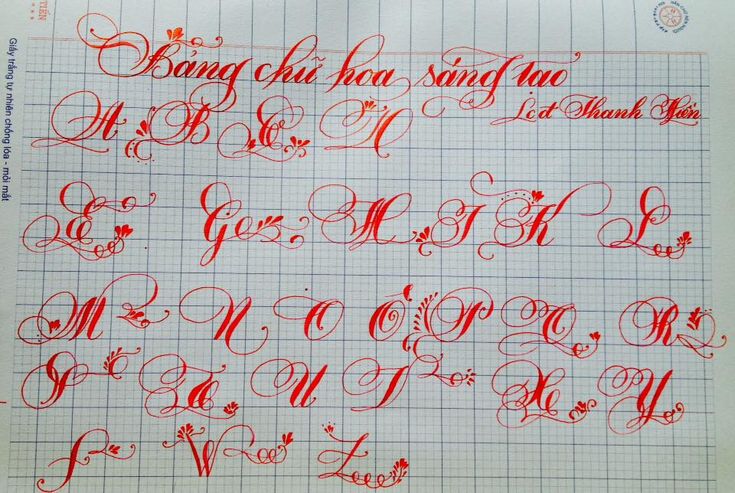 Bảng chữ hoa sáng tạo
Thanh Hiền
A B C D
E G H I K L
M N O O P Q R
S T U V X Y
F W Z
Giấy trắng tự nhiên chống lóa - mỏi mắt